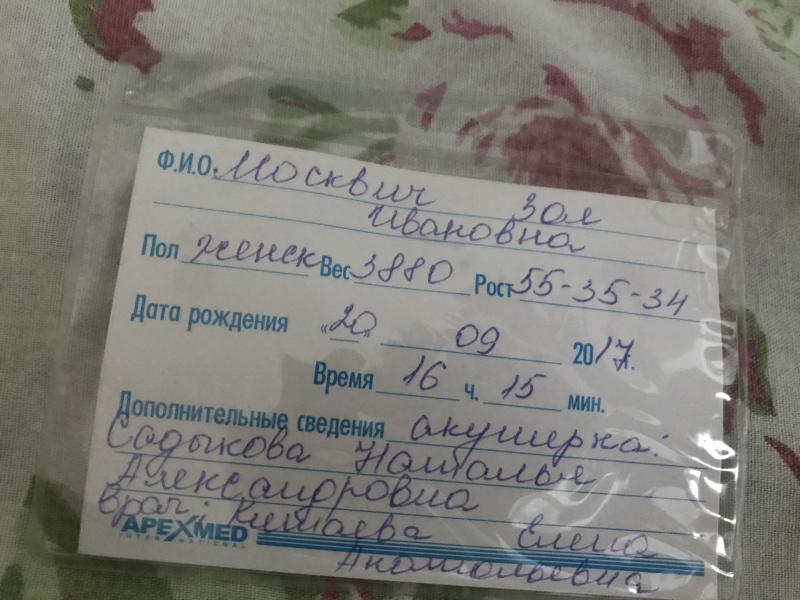 Ф.И.О. Москвич Зоя
Ивановна
Пол женск Вес 3880 Рост 55-35-34
Дата рождения «20» 09 2017г.
Время 16 ч. 15 мин.
Дополнительные сведения акушерка:
Садыкова Наталья
Александровна
врач: Китаева Елена
APEXMED
INTERNATIONAL
Анатольевна